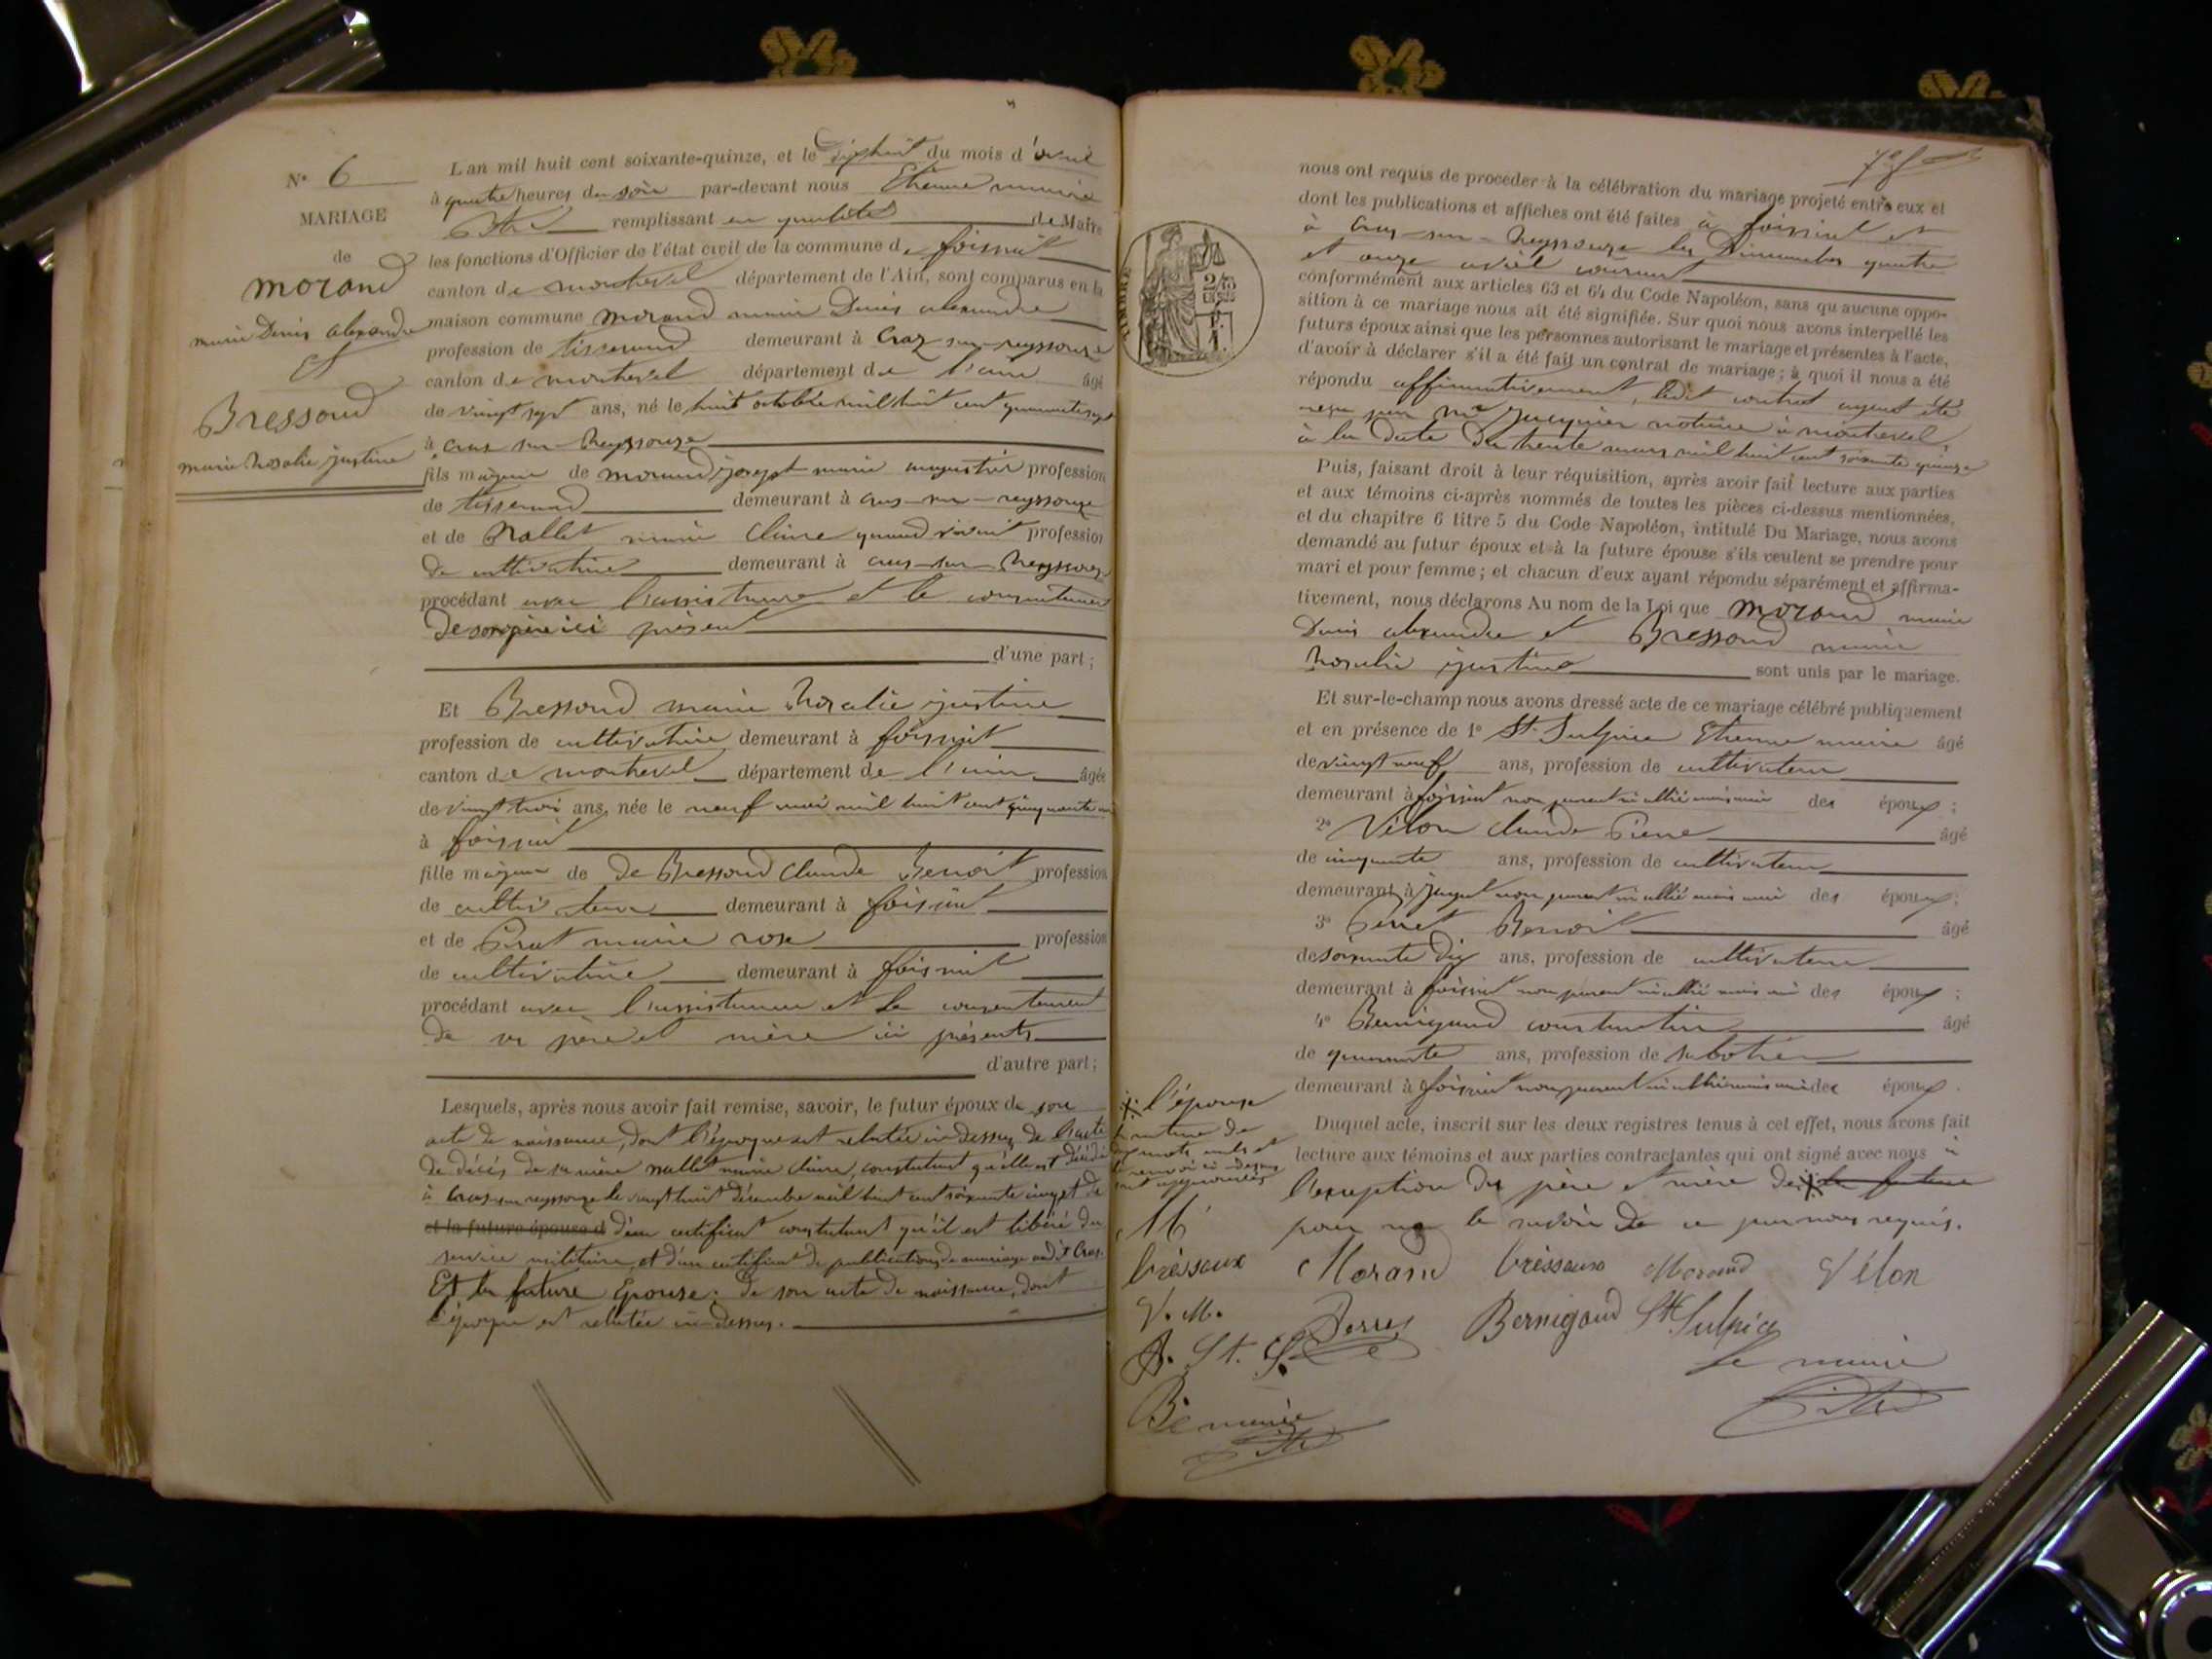 N° 6
MARIAGE
de
Morand
marie Denis alexandre
Et
Bressoud
marie Rosalie justine
L'an mil huit cent soixante-quinze, et le dixhuit du mois d'avril
à quatre heures du soir par-devant nous Etienne marie
remplissant en qualité de Maire
les fonctions d'Officier de l'état civil de la commune de foissiat
canton de montrevel département de l'Ain, sont comparus en la
maison commune Morand marie Denis alexandre
profession de tisserand demeurant à Cras-sur-reyssouze
canton de montrevel département de l'ain âgé
de vingt sept ans, né le huit octobre mil huit cent quarante sept
à cras sur Reyssouze
fils majeur de morand joseph marie augustin profession
de tisserand demeurant à cras-sur-reyssouze
et de Nallet marie Claire quand vivait profession
de cultivatrice demeurant à cras-sur-Reyssouze
procédant avec l'assistance et le consentement
de son père ici présent
d'une part;
Et Bressoud marie Rosalie justine
profession de cultivatrice demeurant à foissiat
canton de montrevel département de l'ain âgée
de vingt trois ans, née le neuf mai mil huit cent cinquante un
à foissiat
fille majeure de de Bressoud Claude Benoit profession
de cultivateur demeurant à foissiat
et de Perat marie rose profession
de cultivatrice demeurant à foissiat
procédant avec l'assistance et le consentement
de ses père et mère ici présents
d'autre part;
Lesquels, après nous avoir fait remise, savoir, le futur époux de son
acte de naissance, dont l'époque est relatée ci-dessus, de l'acte
de décès de sa mère nallet marie claire, constatant qu'elle est décédée
à Cras sur reyssouze le vingt huit décembre mil huit cent soixante cinq et de
et la future épouse d d'un certificat constatant qu'il est libéré du
service militaire et d'un certificat de publications de mariage audit Cras.
Et la future Epouse: de son acte de naissance, dont
l'époque est relatée ci-dessus.
nous ont requis de procéder à la célébration du mariage projeté entre eux et
dont les publications et affiches ont été faites à foissiat et
à Cras-sur-Reyssouze les Dimanches quatre
et onze avril courant
conformément aux articles 63 et 64 du Code Napoléon, sans qu'aucune oppo-
sition à ce mariage nous ait été signifiée. Sur quoi nous avons interpellé les
futurs époux ainsi que les personnes autorisant le mariage et présentes à l'acte,
d'avoir à déclarer s'il a été fait un contrat de mariage; à quoi il nous a été
répondu affirmativement, ledit contrat ayant été
reçu par Me Jacquier notaire à montrevel
à la date du trente mars mil huit cent soixante quinze
Puis, faisant droit à leur réquisition, après avoir fait lecture aux parties
et aux témoins ci-après nommés de toutes les pièces ci-dessus mentionnées,
et du chapitre 6 titre 5 du Code Napoléon, intitulé Du Mariage, nous avons
demandé au futur époux et à la future épouse s'ils veulent se prendre pour
mari et pour femme; et chacun d'eux ayant répondu séparément et affirma-
tivement, nous déclarons Au nom de la Loi que Morand marie
Denis alexandre et Bressoud marie
Rosalie justine sont unis par le mariage.
Et sur-le-champ nous avons dressé acte de ce mariage célébré publiquement
et en présence de 1° St. Sulpice Etienne marie âgé
de vingt neuf ans, profession de cultivateur
demeurant à foissiat non parent ni allié mais ami des époux;
2° Vélon claude Pierre âgé
de cinquante ans, profession de cultivateur
demeurant à Jayat non parent ni allié mais ami des époux;
3° Perret Benoit âgé
de soixante dix ans, profession de cultivateur
demeurant à foissiat non parent ni allié mais ami des époux;
4° Bernigaud constantin âgé
de quarante ans, profession de sabotier
demeurant à foissiat non parent ni allié mais ami des époux.
Duquel acte, inscrit sur les deux registres tenus à cet effet, nous avons fait
lecture aux témoins et aux parties contractantes qui ont signé avec nous à
l'exception des père et mère de la future
pour ne le savoir de ce par nous requis.
l'épouse
la rature de
mots nuls et
le renvoi ci-dessus
sont approuvés
M
bressoux Morand bressoux Morand Vélon
V. M.
Perret Bernigaud St Sulpice
P. St. S.
le maire
B. Le maire
TIMBRE